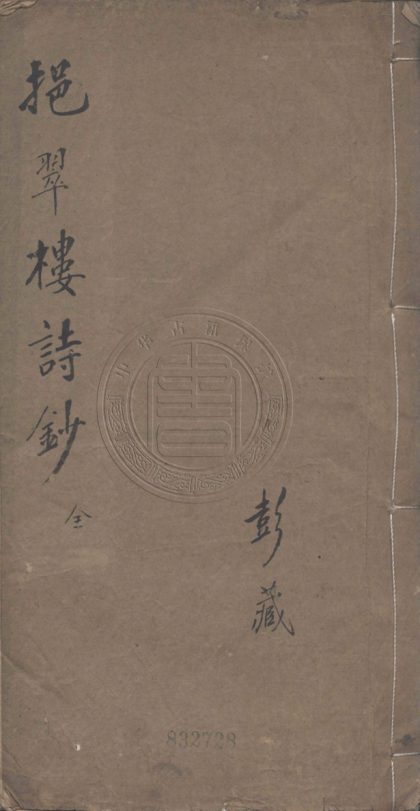 挹翠樓詩鈔 全
彭藏
832728